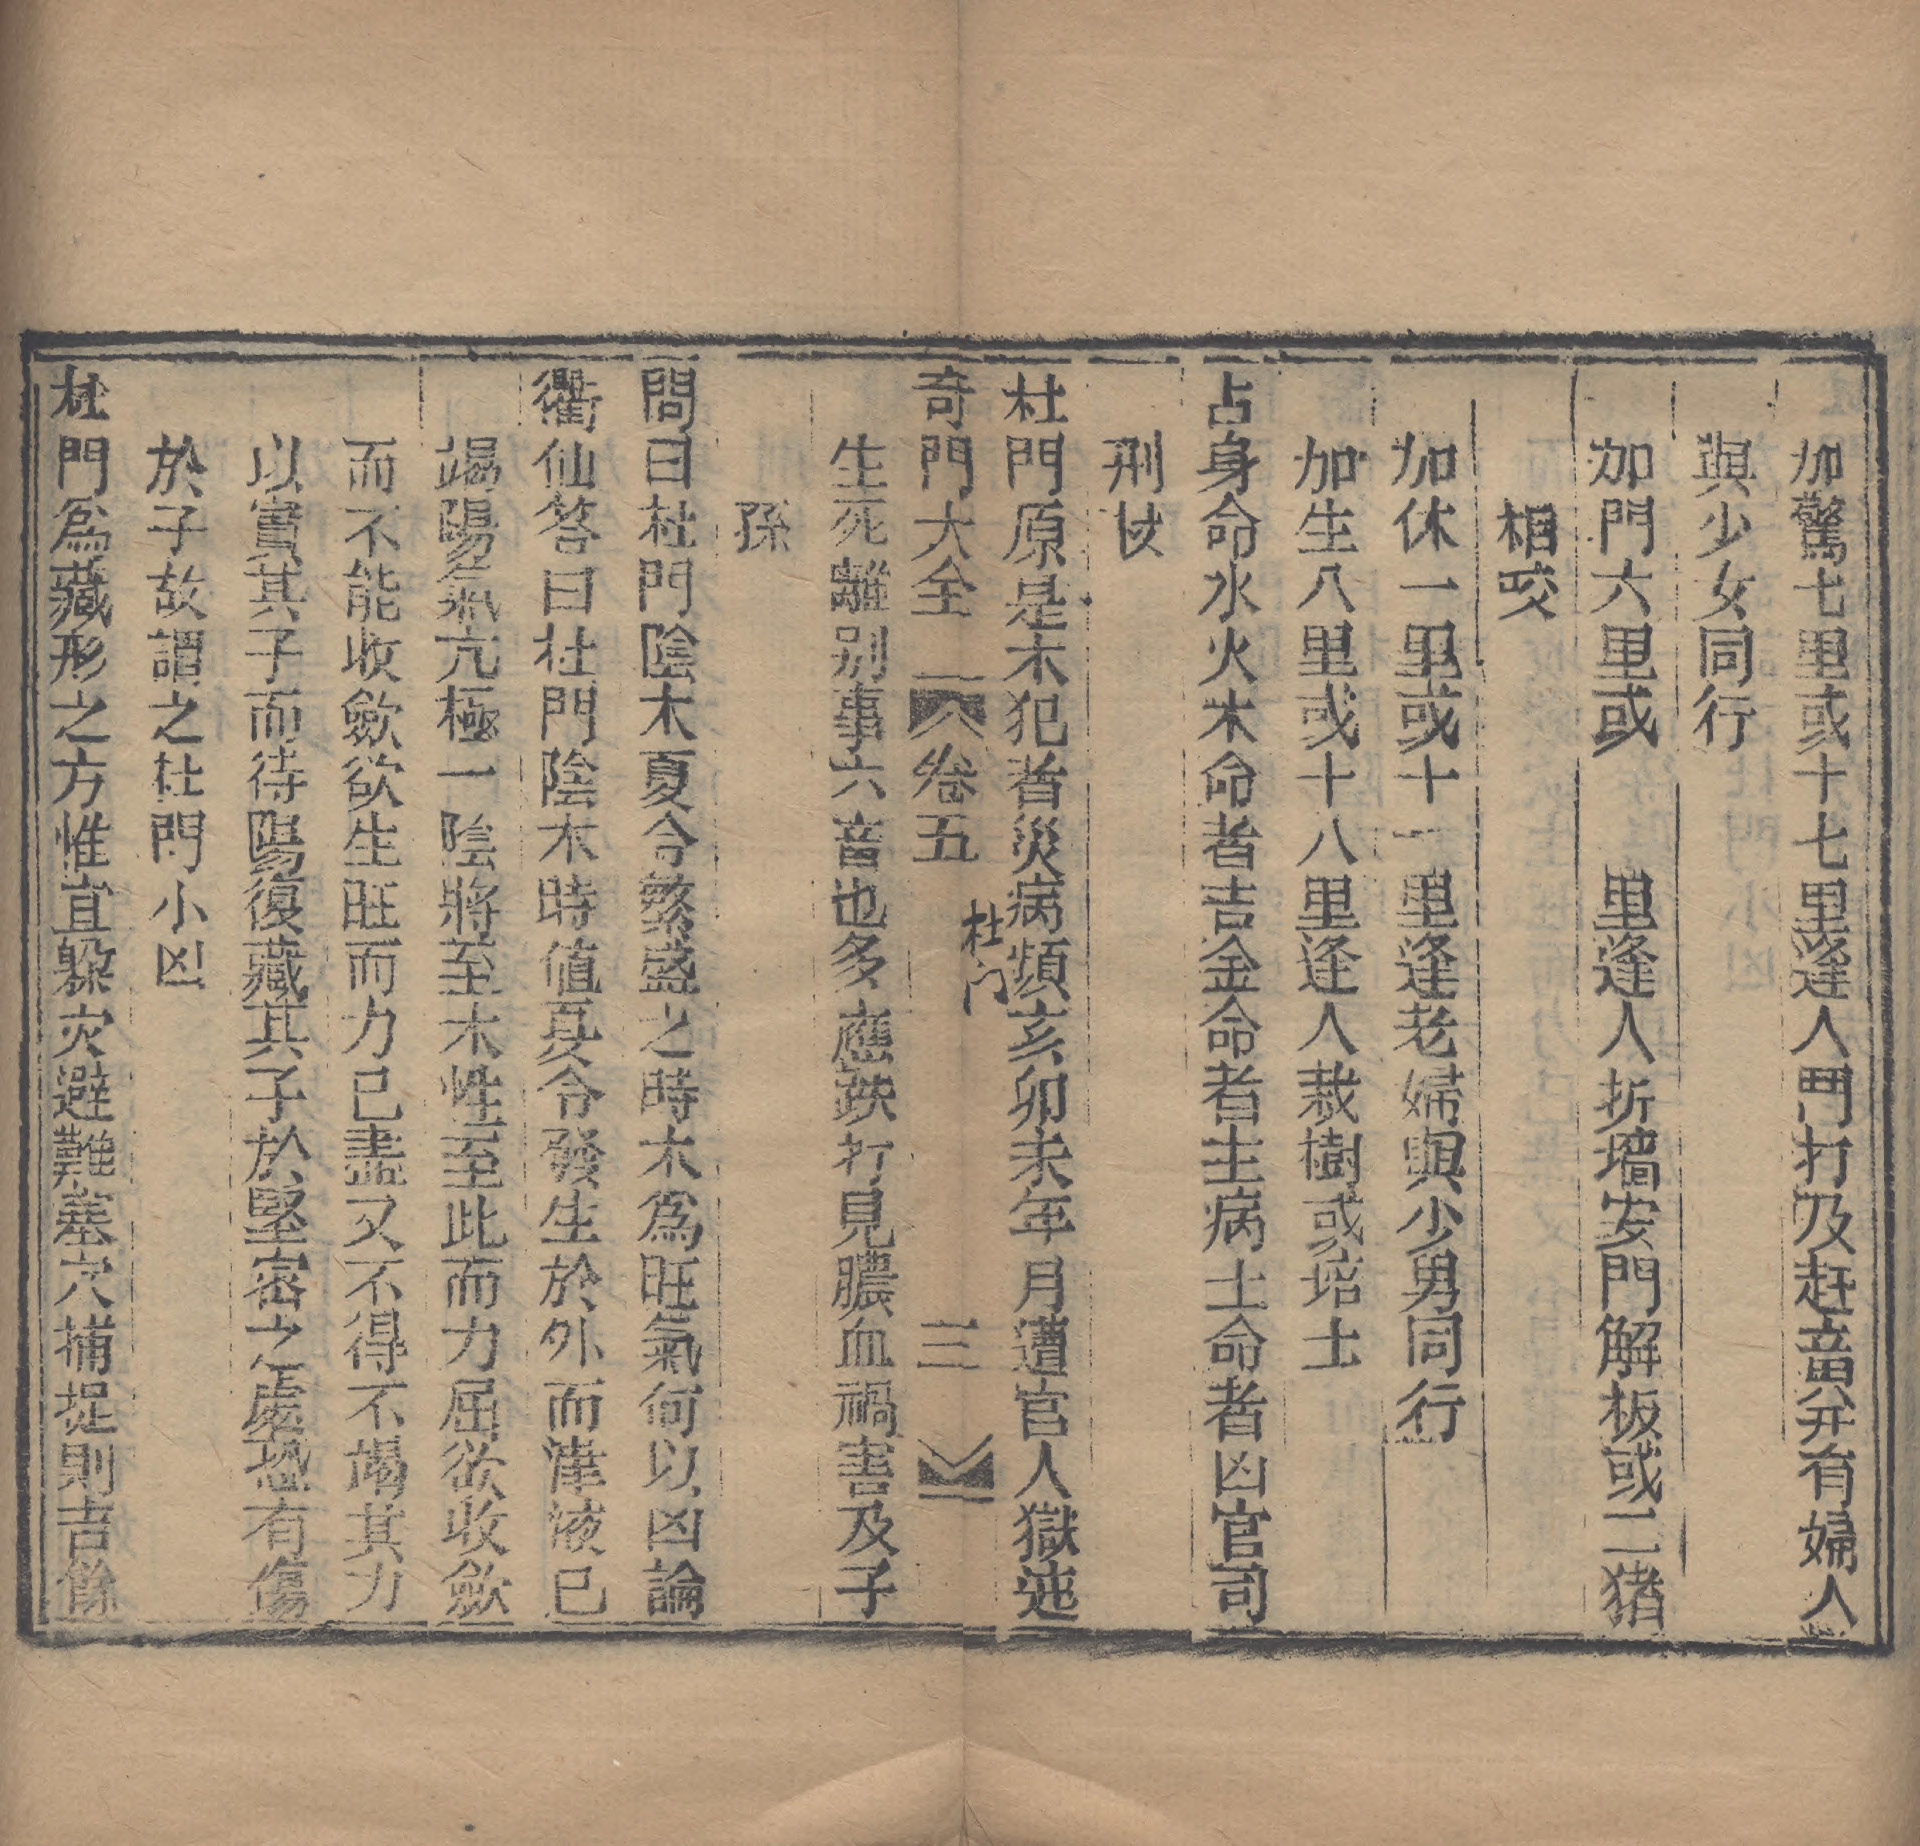 加驚七里或十七里逢人鬥打及赶畜并有婦人
與少女同行
加門六里或　里逢人折墻安門解板或二猪
相咬
加休一里或十一里逢老婦與少男同行
加生八里或十八里逢人栽樹或培土
占身命水火木命者吉金命者主病土命者凶官司
刑杖
杜門原是木犯者災病頻亥卯未年月遭官人獄迍
奇門大全　卷五　杜门　三
生死離别事六畜也多應跌打見膿血禍害及子
孫
問曰杜門陰木夏令繁盛之時木爲旺氣何以凶論
衢仙答曰杜門陰木時值夏令發生於外而津液已
竭陽氣亢極一陰將至木性至此而力屈欲收斂
而不能收斂欲生旺而力已盡又不得不竭其力
以實其子而待陽復藏其子於堅密之處恐有傷
於子故謂之杜門小凶
杜門爲藏形之方惟宜躲灾避難塞穴捕捉則吉餘